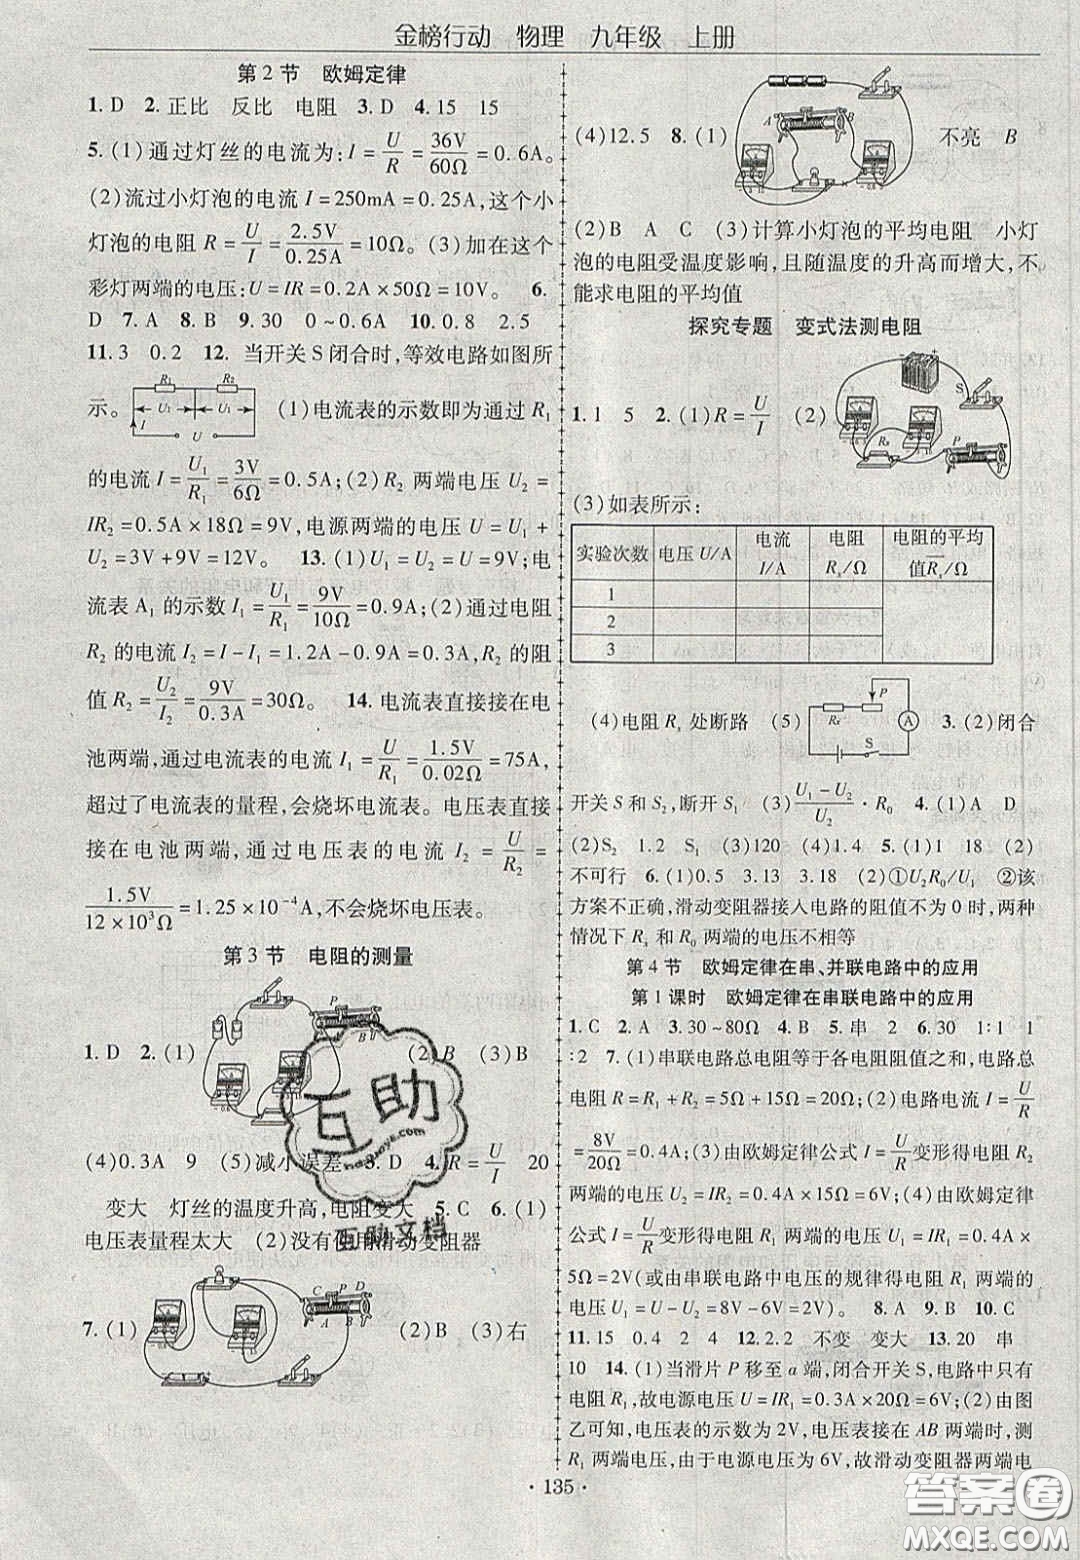 金榜行动 物理 九年级 上册
第2节 欧姆定律
1. D 2. 正比 反比 电阻 3. D 4. 15 15
5. (1)通过灯丝的电流为:I=U/R=36V/60Ω=0.6A。
(2)流过小灯泡的电流 I=250mA=0.25A,这个小
灯泡的电阻 R=U/I=2.5V/0.25A=10Ω。(3)加在这个
彩灯两端的电压:U=IR=0.2A×50Ω=10V。 6.
D 7. A 8. B 9. 30 0~0.6A 10. 0.8 2.5
11. 3 0.2 12. 当开关S闭合时,等效电路如图所
示。 R₁ R₂ U₁ U₁ I U (1)电流表的示数即为通过 R₁
的电流 I=U₁/R₁=3V/6Ω=0.5A;(2)R₂ 两端电压 U₂=
IR₂=0.5A×18Ω=9V,电源两端的电压 U=U₁+
U₂=3V+9V=12V。 13. (1)U₁=U₂=U=9V;电
流表 A₁ 的示数 I₁=U₁/R₁=9V/10Ω=0.9A;(2)通过电阻
R₂ 的电流 I₂=I-I₁=1.2A-0.9A=0.3A,R₂ 的阻
值 R₂=U₂/I₂=9V/0.3A=30Ω。 14. 电流表直接接在电
池两端,通过电流表的电流 I₁=U/R₁=1.5V/0.02Ω=75A,
超过了电流表的量程,会烧坏电流表。电压表直接
接在电池两端,通过电压表的电流 I₂=U/R₂=
1.5V/12×10³Ω=1.25×10⁻⁴A,不会烧坏电压表。
第3节 电阻的测量
1. D 2. (1) P A B (2)B (3)B
(4)0.3A 9 (5)减小误差 3. D 4. R=U/I 20
变大 灯丝的温度升高,电阻变大 5. C 6. (1)
电压表量程太大 (2)没有使用滑动变阻器
7. (1) C P D A B (2)B (3)右
(4)12.5 8. (1) A B 不亮 B
(2)B A C (3)计算小灯泡的平均电阻 小灯
泡的电阻受温度影响,且随温度的升高而增大,不
能求电阻的平均值
探究专题 变式法测电阻
1. 1 5 2. (1)R=U/I (2) S Rₓ P
(3)如表所示:
实验次数 电压U/A 电流I/A 电阻Rₓ/Ω 电阻的平均值Rₓ/Ω
1
2
3
(4)电阻 Rₓ 处断路 (5) P Rₓ A S 3. (2)闭合
开关S和S₂,断开S₁ (3)U₁-U₂/U₂·R₀ 4. (1)A D
(2)S₂ 1.2 S₁ (3)120 (4)1.4 5. (1)1 18 (2)
不可行 6. (1)0.5 3.13 3.18 (2)①U₂R₀/U₁ ②该
方案不正确,滑动变阻器接入电路的阻值不为0时,两种
情况下 Rₓ 和 R₀ 两端的电压不相等
第4节 欧姆定律在串、并联电路中的应用
第1课时 欧姆定律在串联电路中的应用
1. C 2. A 3. 30~80Ω 4. B 5. 串 2 6. 30 1:1 1
:2 7. (1)串联电路总电阻等于各电阻阻值之和,电路总
电阻 R=R₁+R₂=5Ω+15Ω=20Ω;(2)电路电流 I=U/R
=8V/20Ω=0.4A;(3)由欧姆定律公式 I=U/R变形得电阻 R₂
两端的电压 U₂=IR₂=0.4A×15Ω=6V;(4)由欧姆定律
公式 I=U/R变形得电阻 R₁ 两端的电压 U₁=IR₁=0.4A×
5Ω=2V(或由串联电路中电压的规律得电阻 R₁ 两端的
电压 U₁=U-U₂=8V-6V=2V)。 8. A 9. B 10. C
11. 15 0.4 2 4 12. 2.2 不变 变大 13. 20 串
10 14. (1)当滑片 P 移至 a 端,闭合开关S,电路中只有
电阻 R₁,故电源电压 U=IR₁=0.3A×20Ω=6V;(2)由图
乙可知,电压表的示数为2V,电压表接在 AB 两端时,测
R₁ 两端电压,由于电源电压为6V,故滑动变阻器两端电
· 135 ·
互助
互助文档
答案圈
MXQE.COM